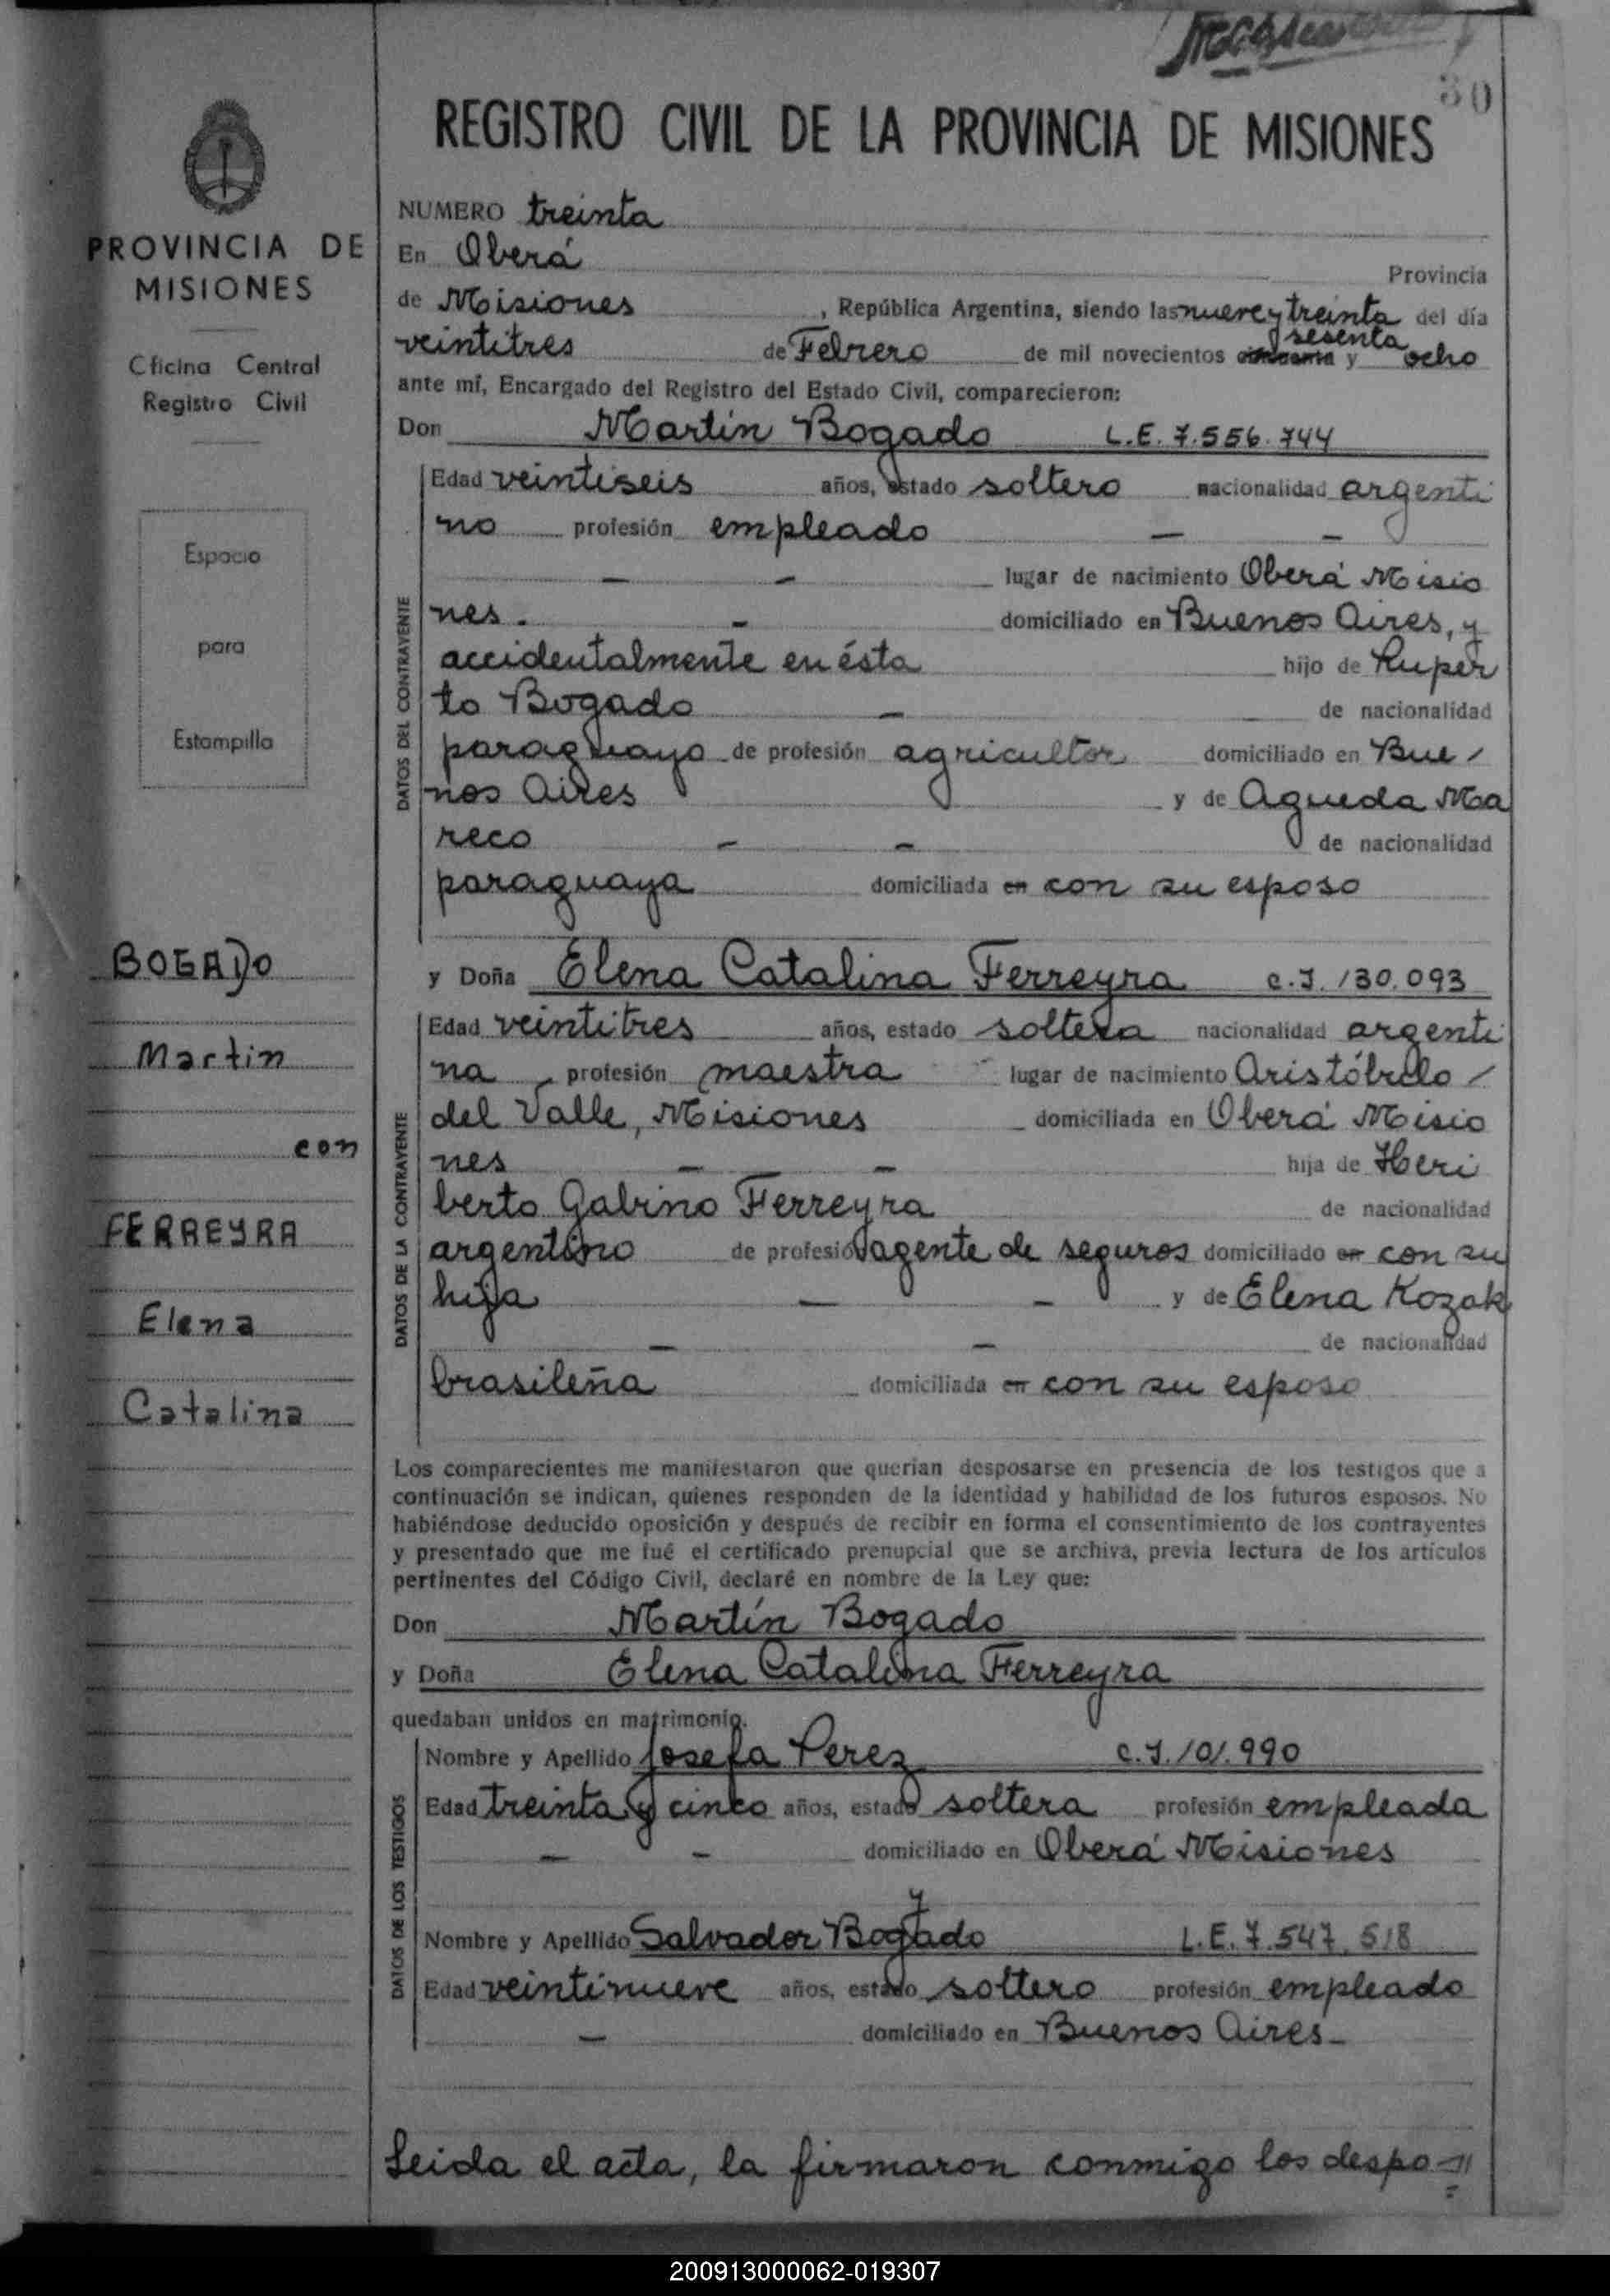 30
REGISTRO CIVIL DE LA PROVINCIA DE MISIONES
PROVINCIA DE
MISIONES
Oficina Central
Registro Civil
Espacio
para
Estampilla
BOGADO
Martin
con
FERREYRA
Elena
Catalina
NUMERO treinta
En Oberá Provincia
de Misiones, República Argentina, siendo las nueve y treinta del día
veintitres de Febrero de mil novecientos sesenta y ocho
ante mí, Encargado del Registro del Estado Civil, comparecieron:
Don Martín Bogado L.E. 7.556.744
DATOS DEL CONTRAYENTE
Edad veintiseis años, estado soltero nacionalidad argenti
no profesión empleado - -
- - lugar de nacimiento Oberá Misio
nes. - domiciliado en Buenos Aires, y
accidentalmente en ésta hijo de Ruper
to Bogado - de nacionalidad
paraguayo de profesión agricultor domiciliado en Bue /
nos Aires y de Agueda Ma
reco - - de nacionalidad
paraguaya domiciliada en con su esposo
y Doña Elena Catalina Ferreyra C.I. 130.093
DATOS DE LA CONTRAYENTE
Edad veintitres años, estado soltera nacionalidad argenti
na profesión maestra lugar de nacimiento Aristóbulo /
del Valle, Misiones domiciliada en Oberá Misio
nes - - hija de Heri
berto Gabino Ferreyra de nacionalidad
argentino de profesión agente de seguros domiciliado en con su
hija - - y de Elena Kozak
- - de nacionalidad
brasileña domiciliada en con su esposo
Los comparecientes me manifestaron que querían desposarse en presencia de los testigos que a
continuación se indican, quienes responden de la identidad y habilidad de los futuros esposos. No
habiéndose deducido oposición y después de recibir en forma el consentimiento de los contrayentes
y presentado que me fué el certificado prenupcial que se archiva, previa lectura de los artículos
pertinentes del Código Civil, declaré en nombre de la Ley que:
Don Martín Bogado
y Doña Elena Catalina Ferreyra
quedaban unidos en matrimonio.
DATOS DE LOS TESTIGOS
Nombre y Apellido Josefa Perez C.I. 101.990
Edad treinta y cinco años, estado soltera profesión empleada
- - domiciliado en Oberá Misiones
y
Nombre y Apellido Salvador Bogado L.E. 7.547.518
Edad veintinueve años, estado soltero profesión empleado
- domiciliado en Buenos Aires -
Leida el acta, la firmaron conmigo los despo=//
200913000062-019307